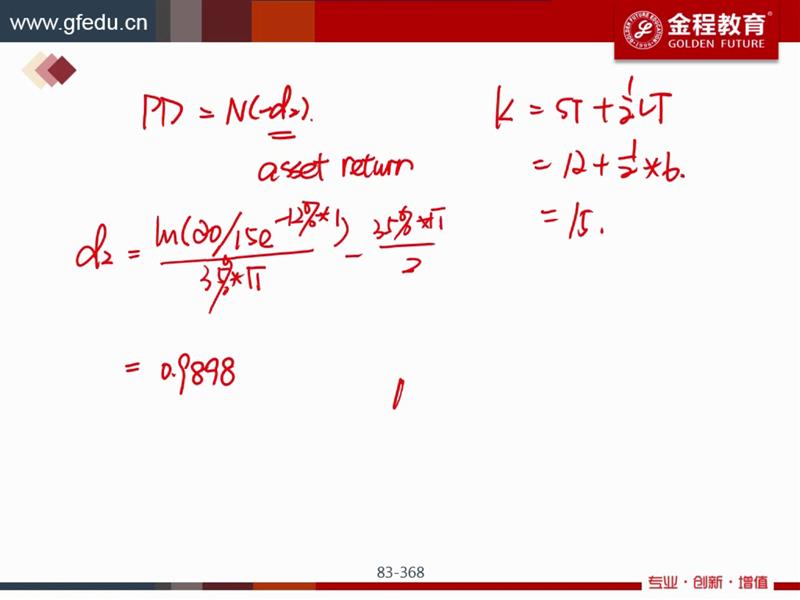 www.gfedu.cn
金程教育
GOLDEN FUTURE
PD = N(-d₂).
asset return
K = ST + ½LT
= 12 + ½*6.
= 15.
d₂ = ln(20/15e^-12%*1) / 35%*√1 - 35%*√1 / 2
= 0.9898
83-368
专业·创新·增值